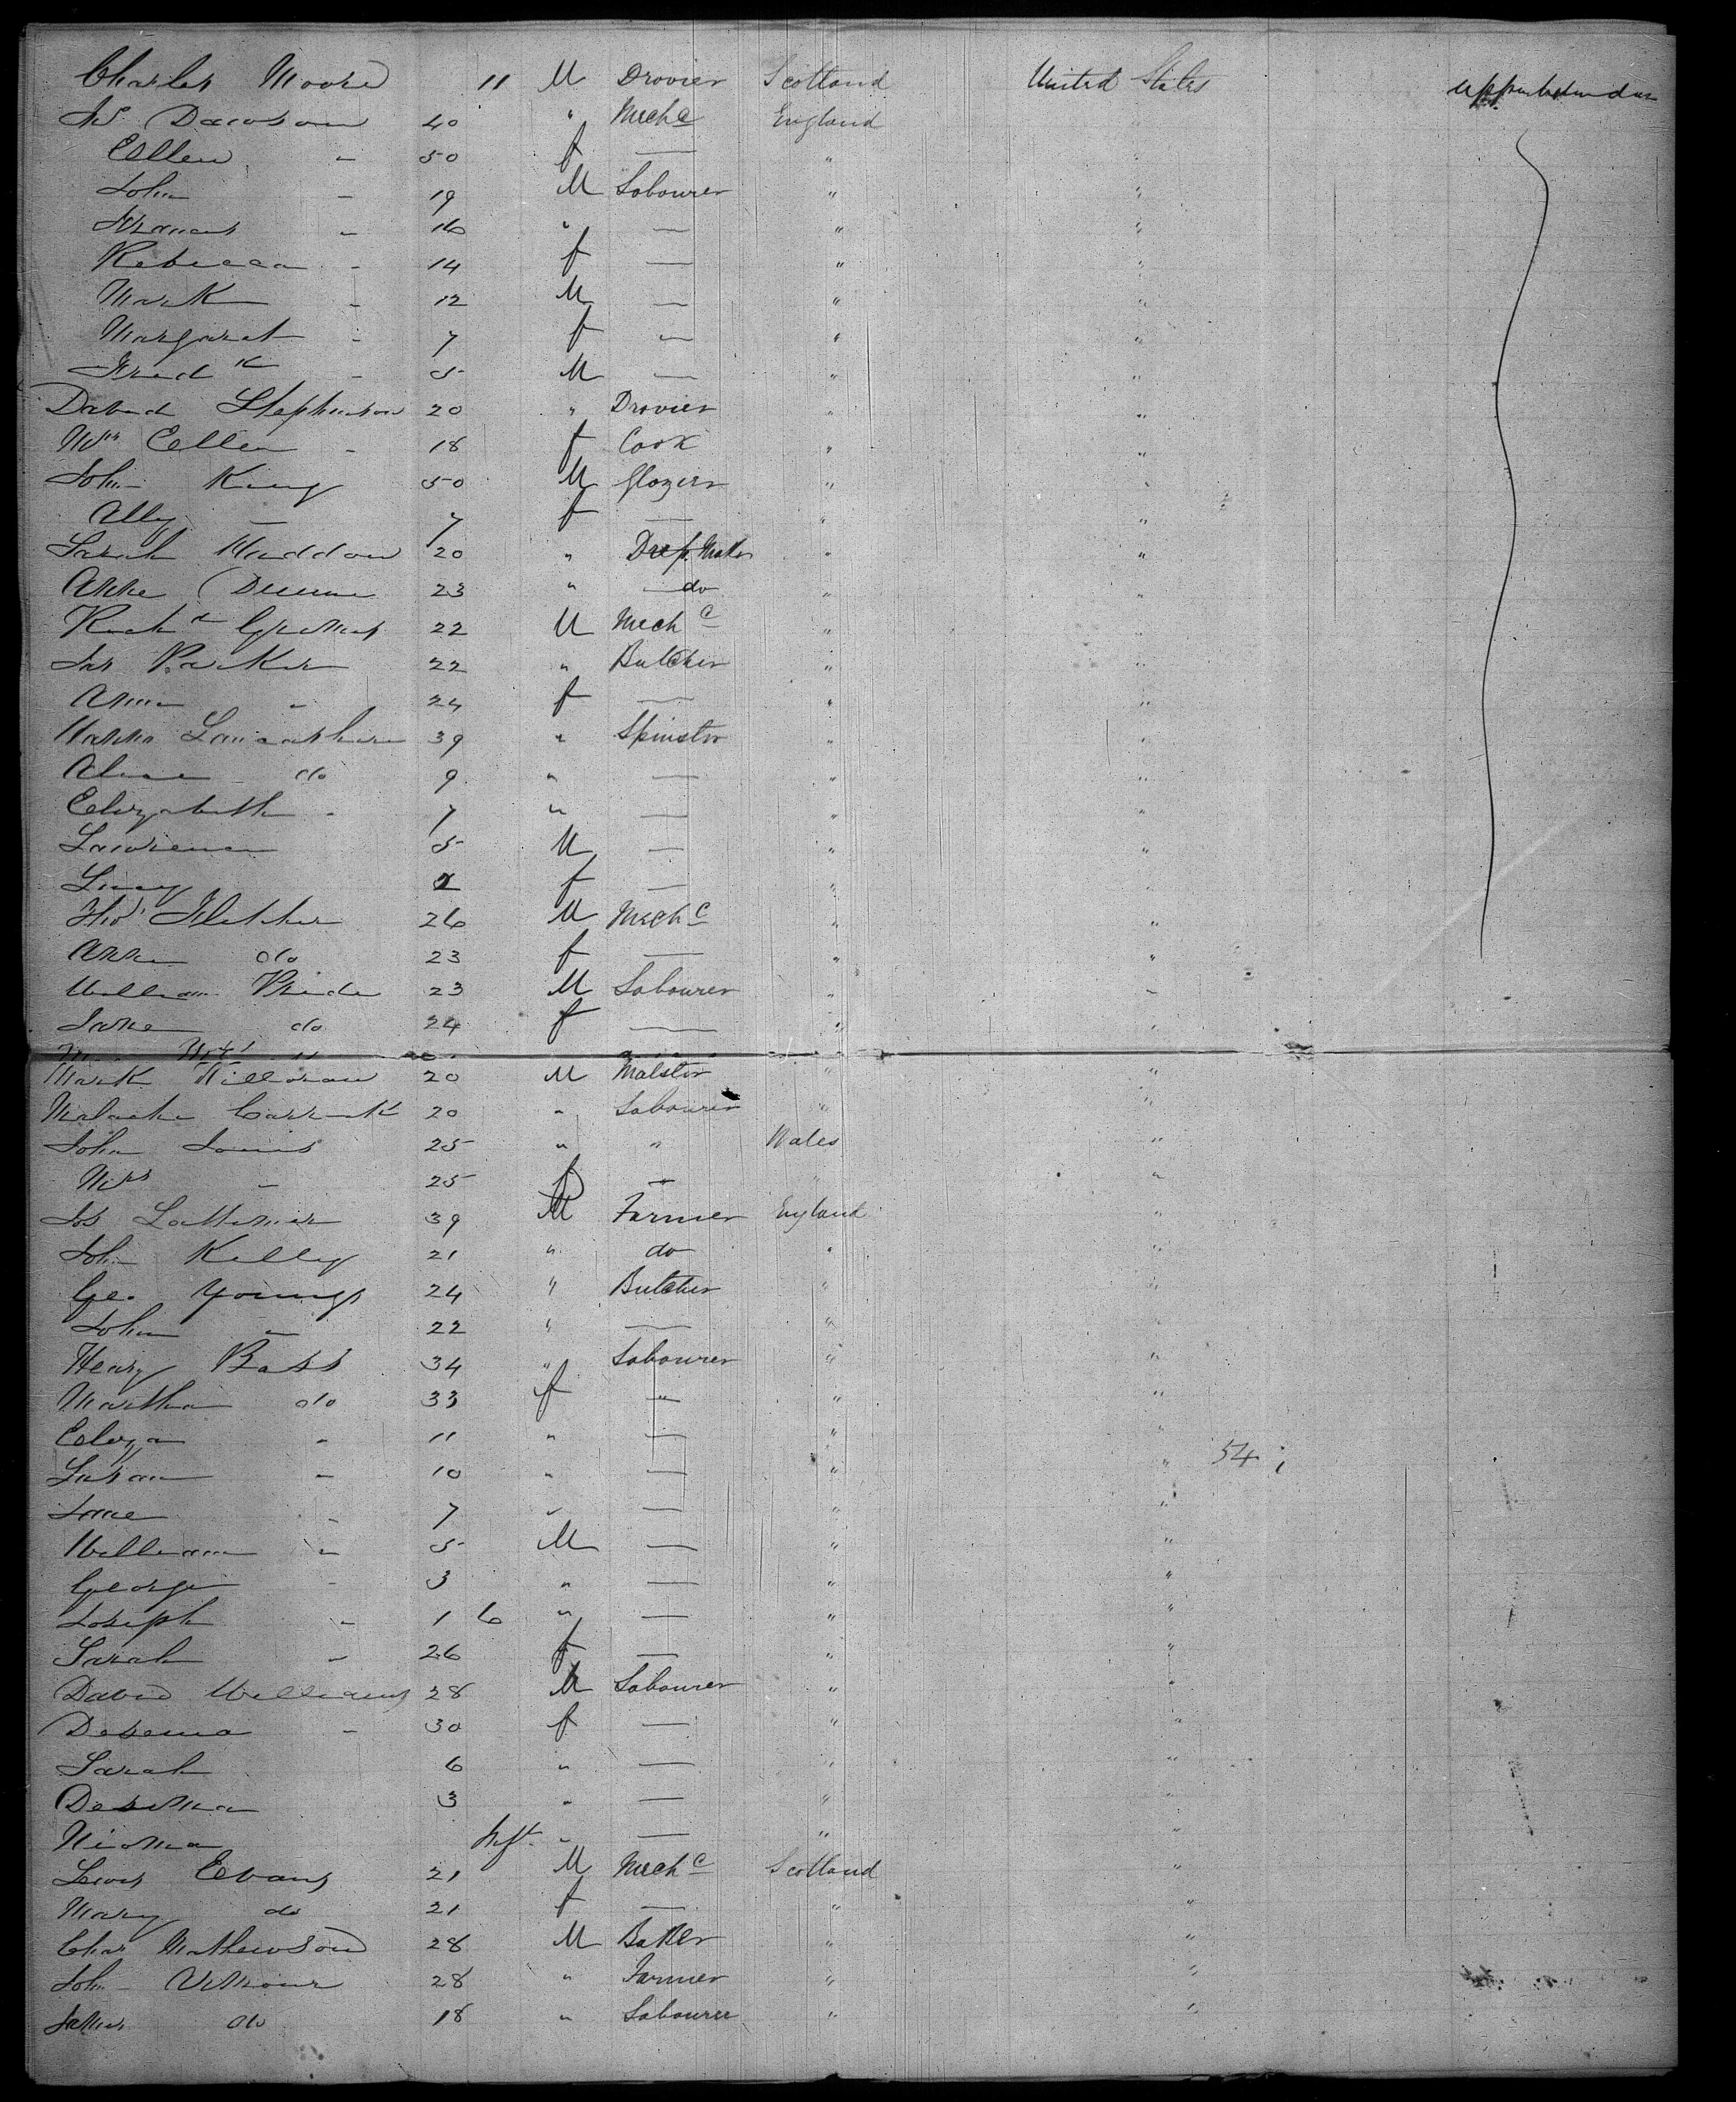 Charles Moore 11 M Drovier Scotland United States upper between decks
W Dawson 40 " Mechc England "
Ellen - 50 f — " "
John - 19 M Labourer " "
Frances - 16 " — " "
Rebecca - 14 f — " "
Mark - 12 M — " "
Margaret - 7 f — " "
Fredk - 5 M — " "
David Stephenson 20 " Drovier " "
Mrs Ellen - 18 f Cook " "
John King 50 M Glazier " "
Ally — 7 f — " "
Sarah Haddon 20 " Dress Maker " "
Anne Dunne 23 " do " "
Richd Grimes 22 M Mechc " "
Jas Parker 22 " Butcher " "
Ann - 24 f — " "
Hanna Lancashire 39 " Spinster " "
Alice do 9 " — " "
Elizabeth - 7 " — " "
Lawrence 5 M — " "
Lucy 2 f — " "
Thos Fletcher 26 M Mechc " "
Anne do 23 f — " "
William Pride 23 M Labourer " "
Jane do 24 f — " "
Mark Killoran 20 M Malster " "
Malachi 20 " Labourer " "
John Jones 25 " " Wales "
Mrs - 25 f " " "
Jos Lattimer 39 M Farmer England "
John Kelly 21 " do " "
Geo Youngs 24 " Butcher " "
John - 22 " — " "
Henry Bass 34 " Labourer " "
Martha do 33 f — " "
Eliza - 11 " — " "
Susan - 10 " — " " 54
Jane - 7 " — " "
William - 5 M — " "
George - 3 " — " "
Joseph - 1 6 " — " "
Sarah - 26 f — " "
David Williams 28 M Labourer " "
Desema - 30 f — " "
Sarah 6 " — " "
Desema 3 " — " "
Inft " — " "
Lewis Evans 21 M Mechc Scotland "
Mary do 21 f — " "
Chas Mathewson 28 M Baker " "
John 28 " Farmer " "
James do 18 " Labourer " "